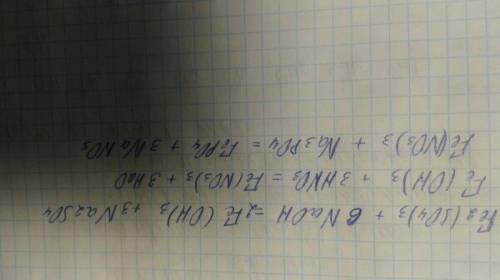 Fe2(SO4)3 + 6NaOH = 2Fe(OH)3 + 3Na2SO4
Fe(OH)3 + 3HNO3 = Fe(NO3)3 + 3H2O
Fe(NO3)3 + Na3PO4 = FePO4 + 3NaNO3